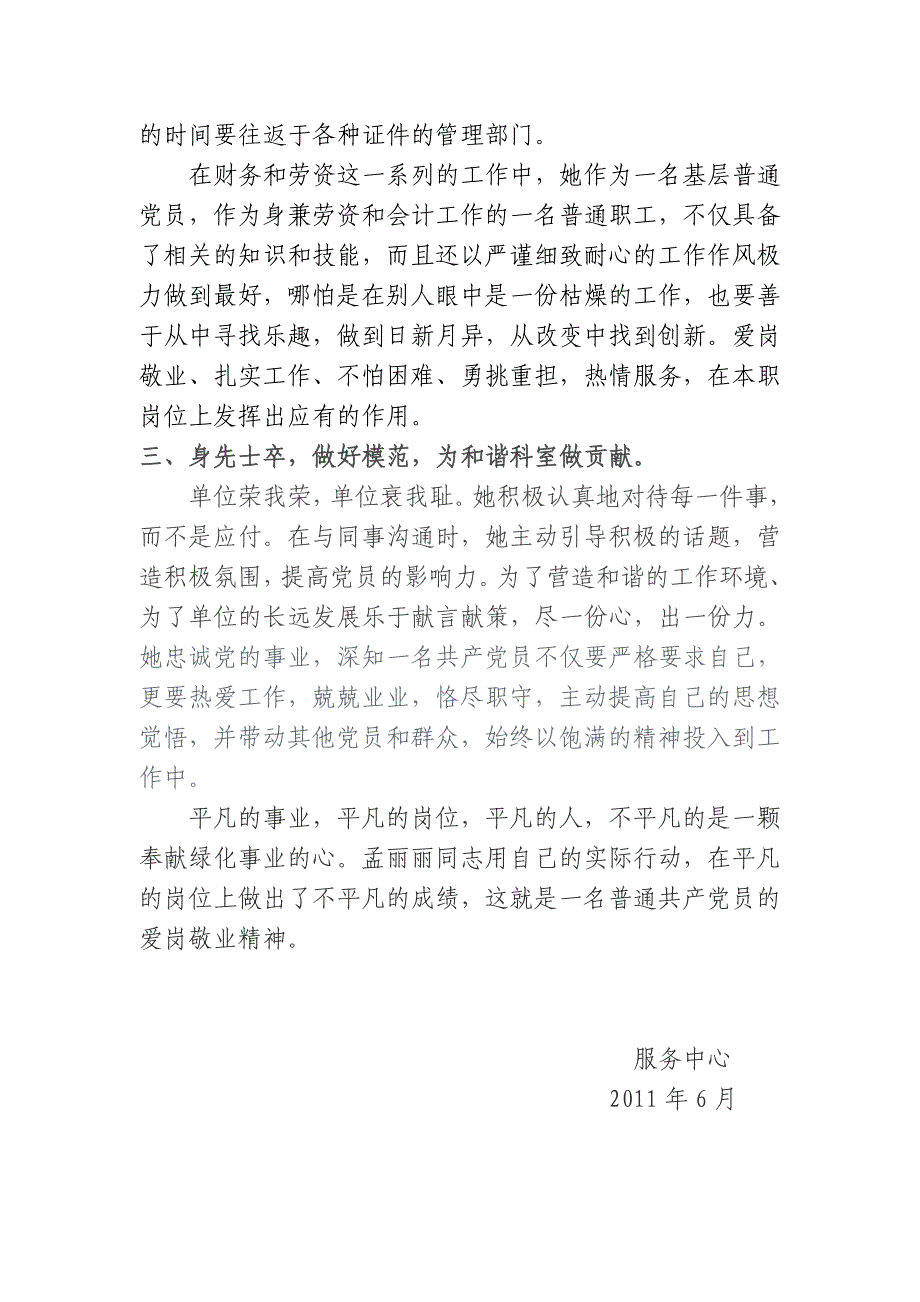 的时间要往返于各种证件的管理部门。
在财务和劳资这一系列的工作中，她作为一名基层普通
党员，作为身兼劳资和会计工作的一名普通职工，不仅具备
了相关的知识和技能，而且还以严谨细致耐心的工作作风极
力做到最好，哪怕是在别人眼中是一份枯燥的工作，也要善
于从中寻找乐趣，做到日新月异，从改变中找到创新。爱岗
敬业、扎实工作、不怕困难、勇挑重担，热情服务，在本职
岗位上发挥出应有的作用。
三、身先士卒，做好模范，为和谐科室做贡献。
单位荣我荣，单位衰我耻。她积极认真地对待每一件事，
而不是应付。在与同事沟通时，她主动引导积极的话题，营
造积极氛围，提高党员的影响力。为了营造和谐的工作环境、
为了单位的长远发展乐于献言献策，尽一份心，出一份力。
她忠诚党的事业，深知一名共产党员不仅要严格要求自己，
更要热爱工作，兢兢业业，恪尽职守，主动提高自己的思想
觉悟，并带动其他党员和群众，始终以饱满的精神投入到工
作中。
平凡的事业，平凡的岗位，平凡的人，不平凡的是一颗
奉献绿化事业的心。孟丽丽同志用自己的实际行动，在平凡
的岗位上做出了不平凡的成绩，这就是一名普通共产党员的
爱岗敬业精神。
服务中心
2011 年 6 月